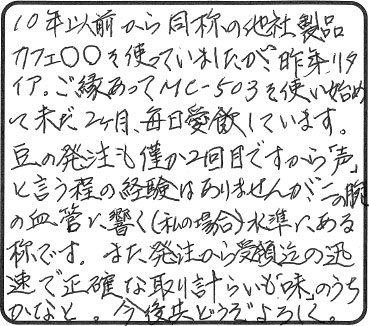 10年以前から同称の他社製品
カフェ〇〇を使っていましたが、昨年リタ
イア。ご縁あってMC-503を使い始め
て未だ2ヶ月、毎日愛飲しています。
豆の発注も僅か2回目ですから「声」
と言う程の経験はありませんが、この腕
の血管に響く(私の場合)水準にある
称です。また、発注から受領迄の迅
速で正確な取り計らいも「味」のうち
かなと。今後共どうぞよろしく。